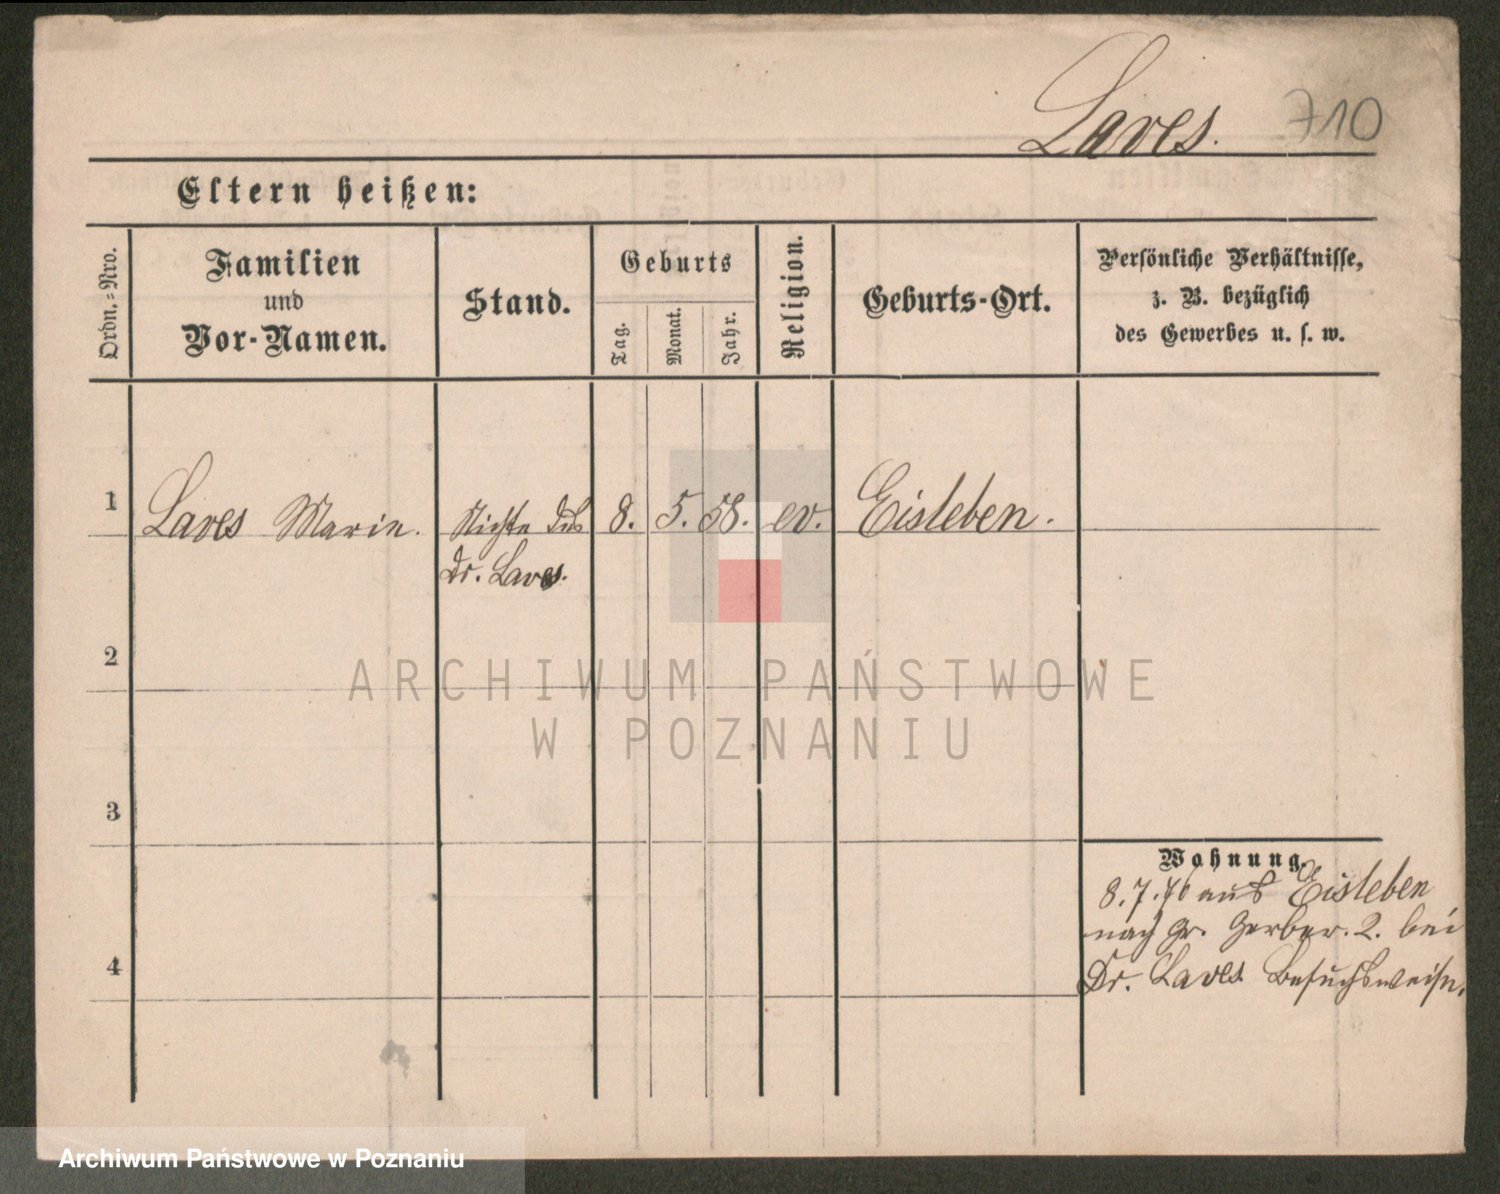 Laves. 710
Eltern heißen:
Ordn.=Nro.
Familien
und
Vor-Namen.
Stand.
Geburts
Tag.
Monat.
Jahr.
Religion.
Geburts-Ort.
Persönliche Verhältnisse,
z. B. bezüglich
des Gewerbes u. s. w.
1 Laves Marie. Nichte des 8. 5. 58. ev. Eisleben.
Dr. Laves.
2
3
4
Wohnung.
8. 7. 70 aus Eisleben
nach Gr. Gerber. 2. bei
Dr. Laves Besuchsweise.
ARCHIWUM PAŃSTWOWE
W POZNANIU
Archiwum Państwowe w Poznaniu